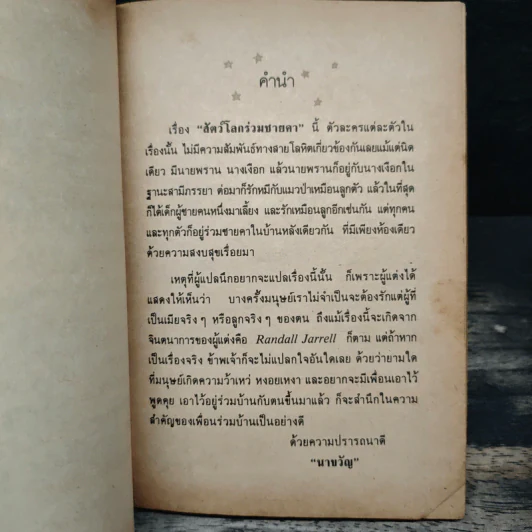 คำนำ
เรื่อง "สัตว์โลกร่วมชายคา" นี้ ตัวละครแต่ละตัวใน
เรื่องนั้น ไม่มีความสัมพันธ์ทางสายโลหิตเกี่ยวข้องกันเลยแม้แต่นิด
เดียว มีนายพราน นางเงือก แล้วนายพรานก็อยู่กับนางเงือกใน
ฐานะสามีภรรยา ต่อมาก็รักหมีกับแมวป่าเหมือนลูกตัว แล้วในที่สุด
ก็ได้เด็กผู้ชายคนหนึ่งมาเลี้ยง และรักเหมือนลูกอีกเช่นกัน แต่ทุกคน
และทุกตัวก็อยู่ร่วมชายคาในบ้านหลังเดียวกัน ที่มีเพียงห้องเดียว
ด้วยความสงบสุขเรื่อยมา
เหตุที่ผู้แปลนึกอยากจะแปลเรื่องนี้นั้น ก็เพราะผู้แต่งได้
แสดงให้เห็นว่า บางครั้งมนุษย์เราไม่จำเป็นจะต้องรักแต่ผู้ที่
เป็นเมียจริง ๆ หรือลูกจริง ๆ ของตน ถึงแม้เรื่องนี้จะเกิดจาก
จินตนาการของผู้แต่งคือ Randall Jarrell ก็ตาม แต่ถ้าหาก
เป็นเรื่องจริง ข้าพเจ้าก็จะไม่แปลกใจอันใดเลย ด้วยว่ายามใด
ที่มนุษย์เกิดความว้าเหว่ หงอยเหงา และอยากจะมีเพื่อนเอาไว้
พูดคุย เอาไว้อยู่ร่วมบ้านกับตนขึ้นมาแล้ว ก็จะสำนึกในความ
สำคัญของเพื่อนร่วมบ้านเป็นอย่างดี
ด้วยความปรารถนาดี
"นาขวัญ"